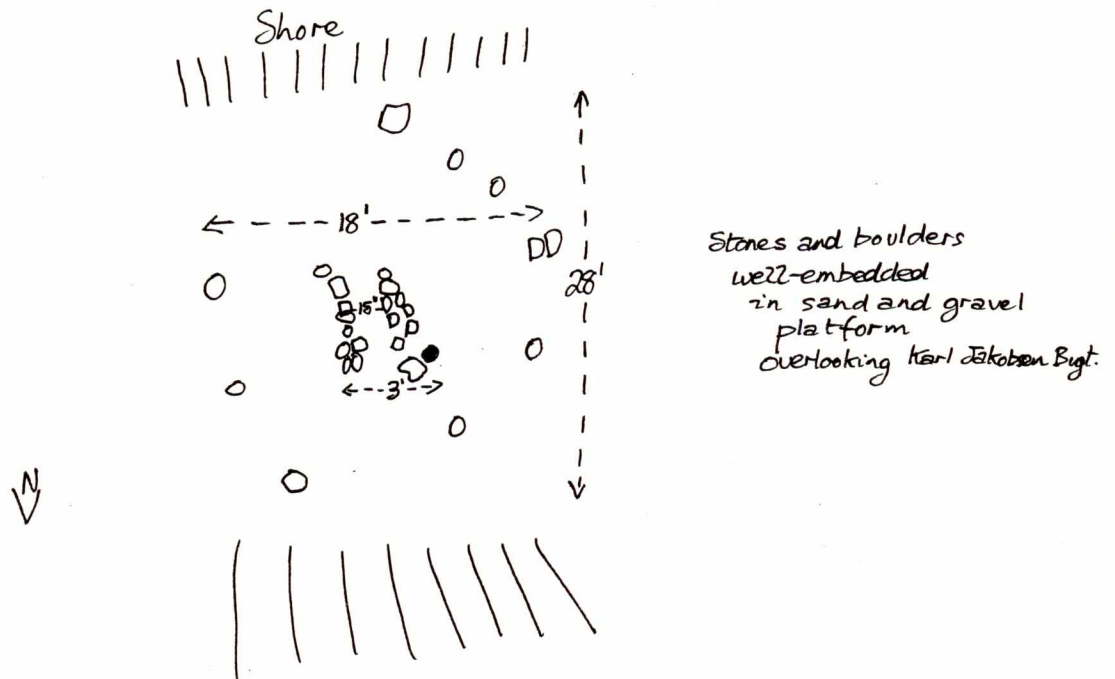 Shore
18'
28'
15'
3'
N
Stones and boulders
well-embedded
in sand and gravel
platform
overlooking Karl Jakobsen Bugt.